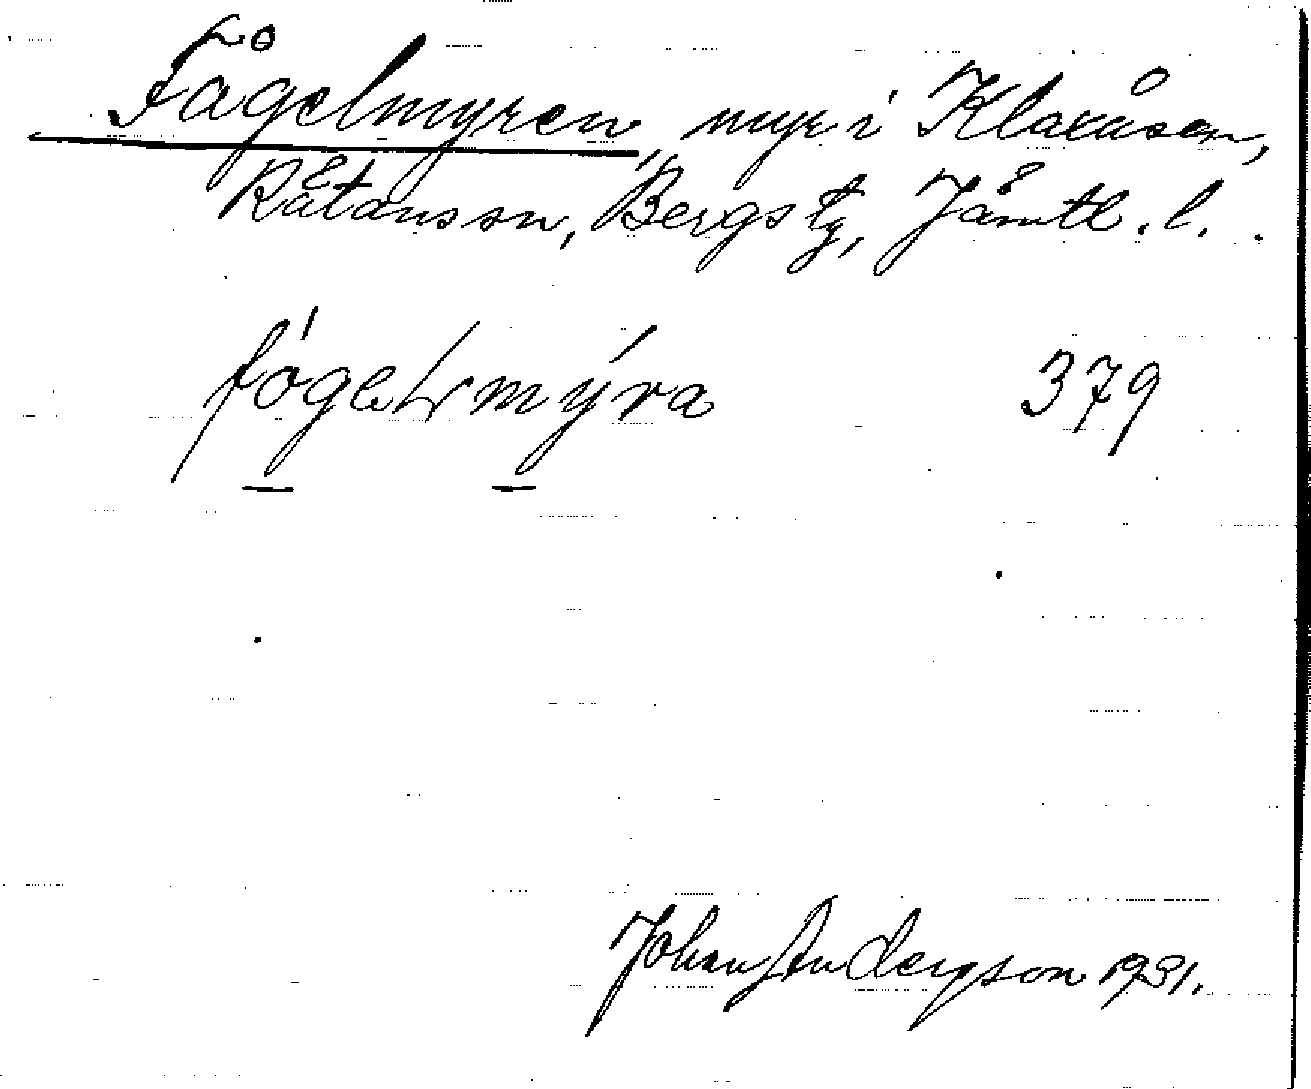 Fågelmyren, myr i Klaxåsen,
Rätans sn, Bergs tg, Jämtl. l.
379
Johan Anderson 1931.